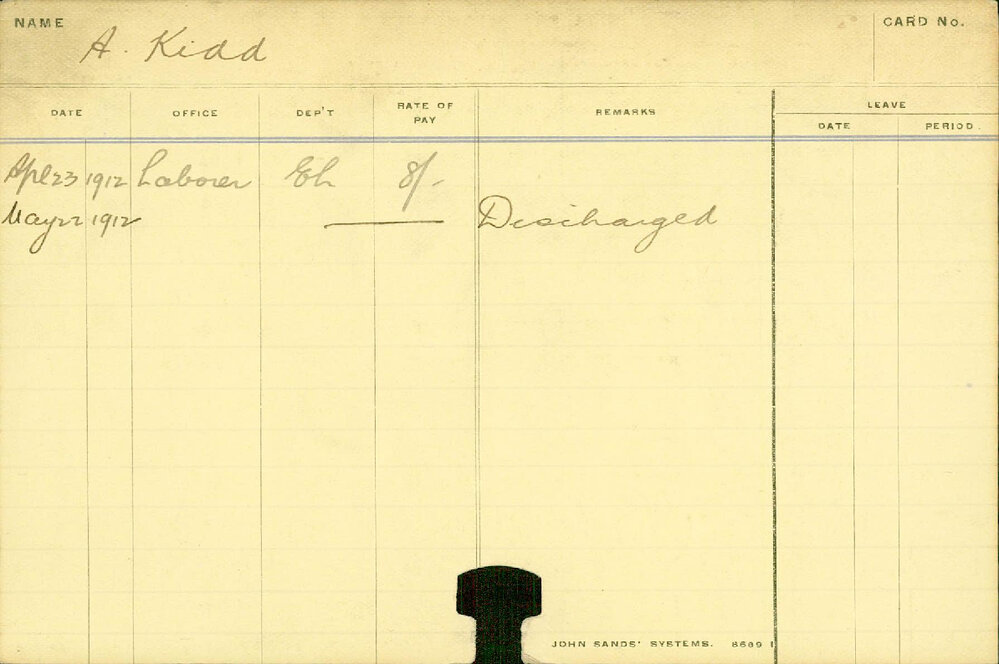 NAME A. Kidd CARD No.
DATE OFFICE DEP'T RATE OF PAY REMARKS LEAVE
DATE PERIOD.
Apl 23 1912 Laborer Eh 8/-
May 22 1912 Discharged
JOHN SANDS' SYSTEMS. 8609